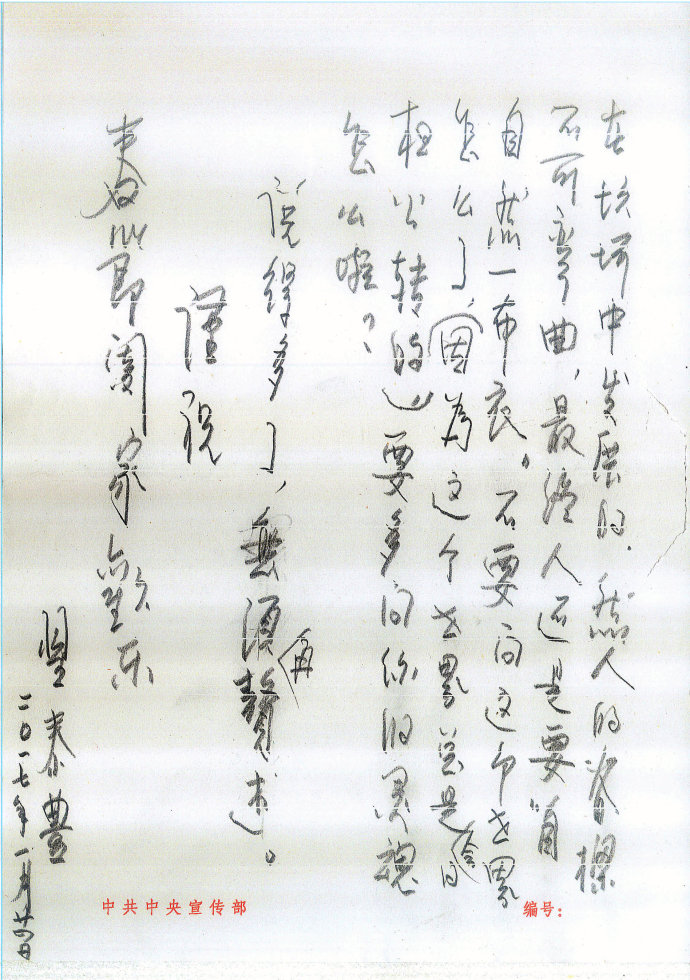 在坎坷中发展的.然人的脊樑
不可弯曲,最终人还是要"自
自然一布衣。不要问这个世界
怎么了,(因为这个世界总是
相公转的)要多问你的灵魂
怎么啦?
说得多了,無須再贅述。
谨祝
春节即阖家欢乐
泰豊
二〇一七年一月廿四日
中共中央宣传部
编号: